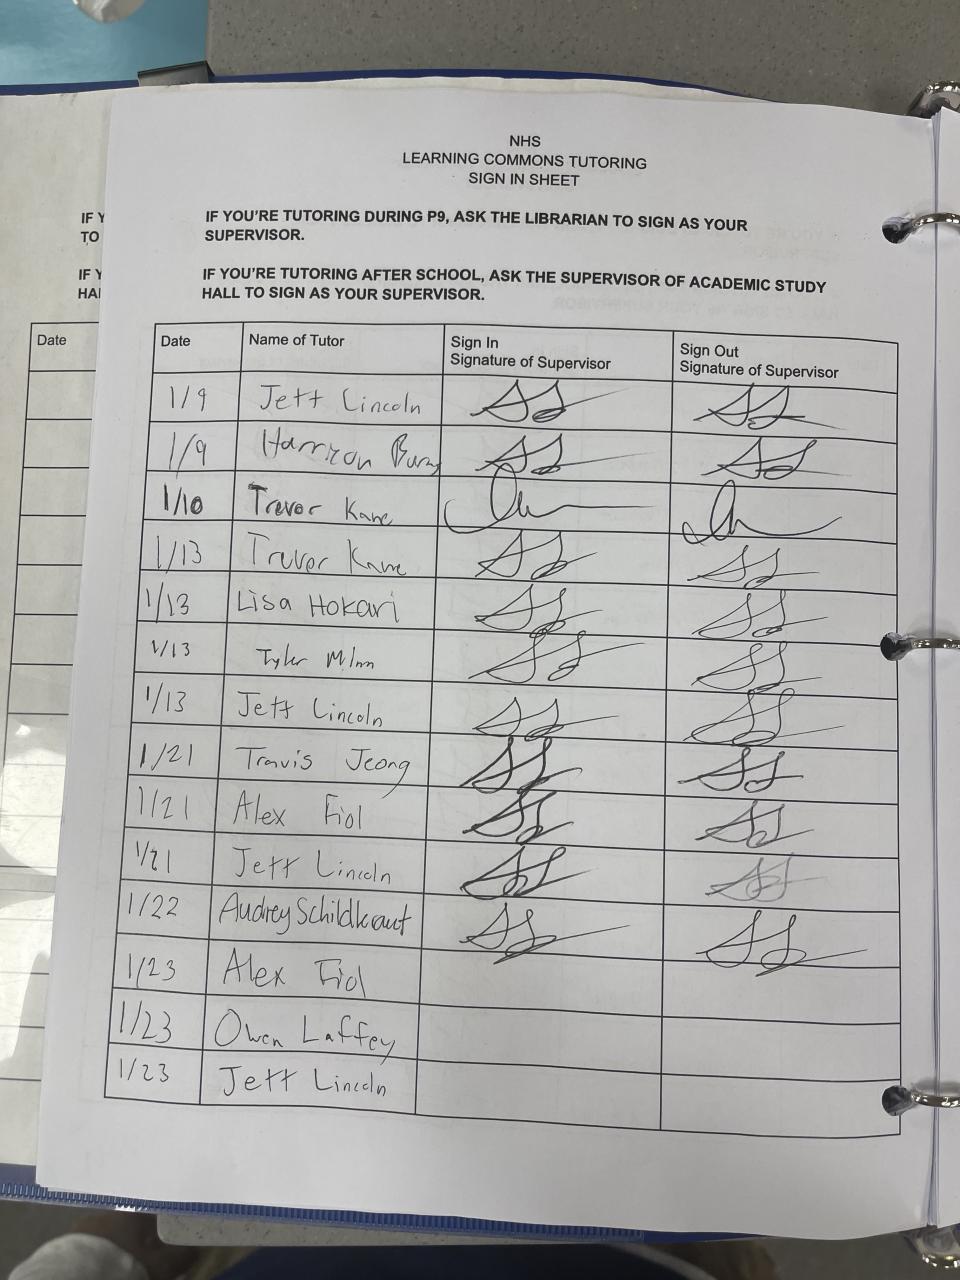 NHS
LEARNING COMMONS TUTORING
SIGN IN SHEET
IF YOU'RE TUTORING DURING P9, ASK THE LIBRARIAN TO SIGN AS YOUR
SUPERVISOR.
IF YOU'RE TUTORING AFTER SCHOOL, ASK THE SUPERVISOR OF ACADEMIC STUDY
HALL TO SIGN AS YOUR SUPERVISOR.
IF Y
TO
IF Y
HAI
Date
Date Name of Tutor Sign In Sign Out
Signature of Supervisor Signature of Supervisor
1/9 Jett Lincoln
1/9 Harrison
1/10 Trevor Kane
1/13 Trevor Kane
1/13 Lisa Hokari
1/13 Tyler
1/13 Jett Lincoln
1/21 Travis Jeong
1/21 Alex Fiol
1/21 Jett Lincoln
1/22 Audrey Schildkraut
1/23 Alex Fiol
1/23 Owen Laffey
1/23 Jett Lincoln